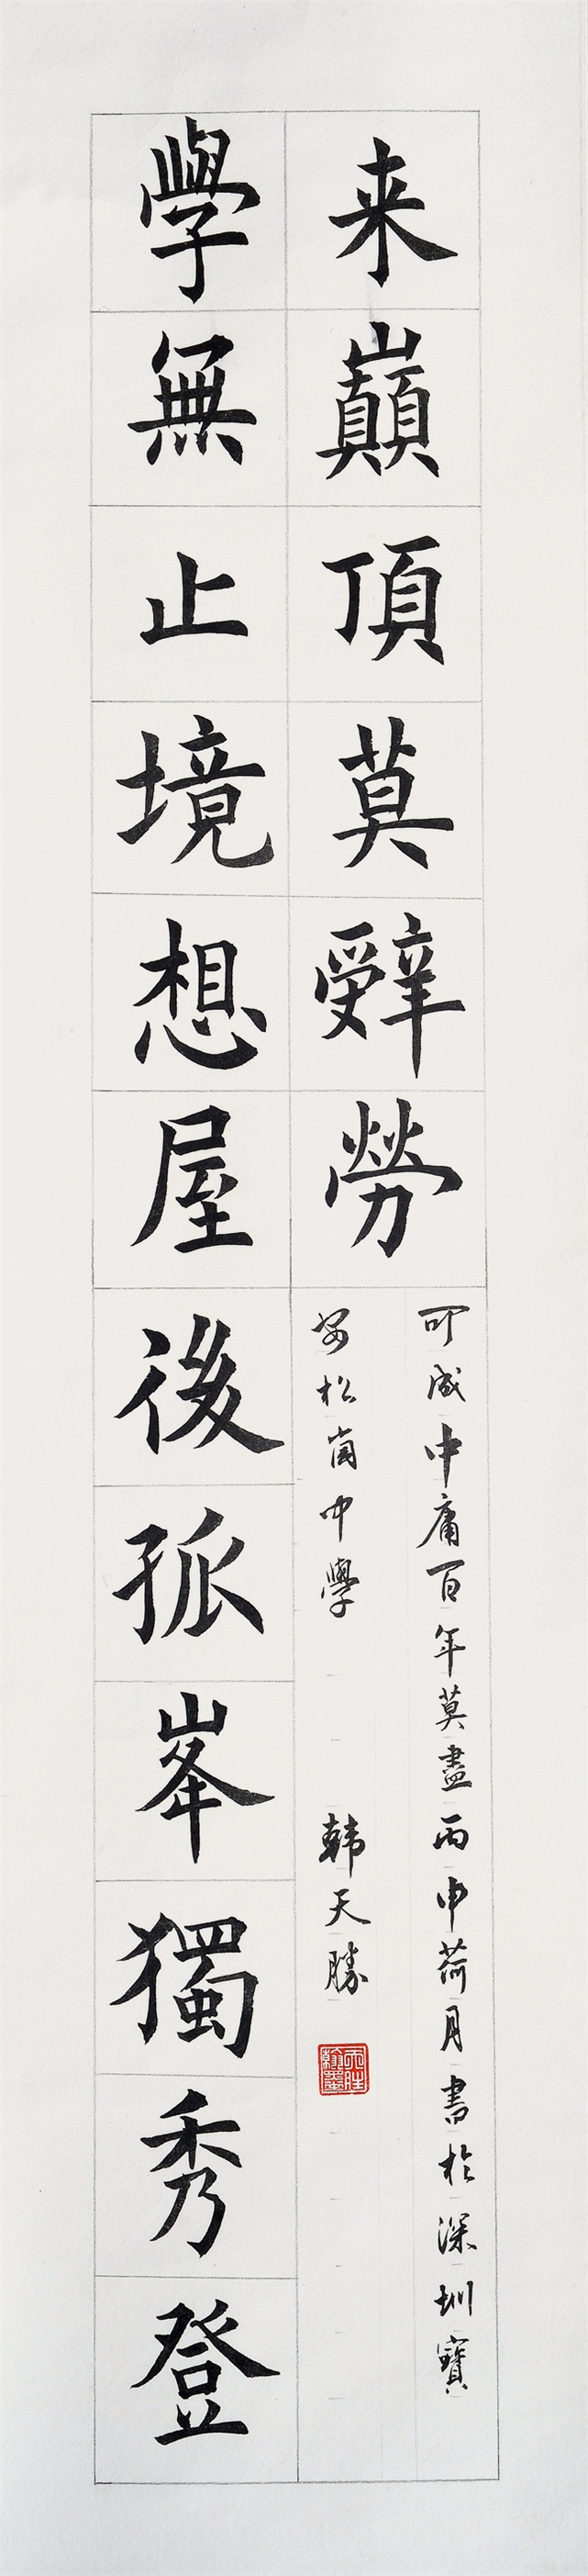 學無止境想屋後孤峯獨秀登
来巔頂莫辤勞
可成中庸百年莫盡丙申荷月書於深圳寶
安松崗中學 韩天勝
天胜翰墨